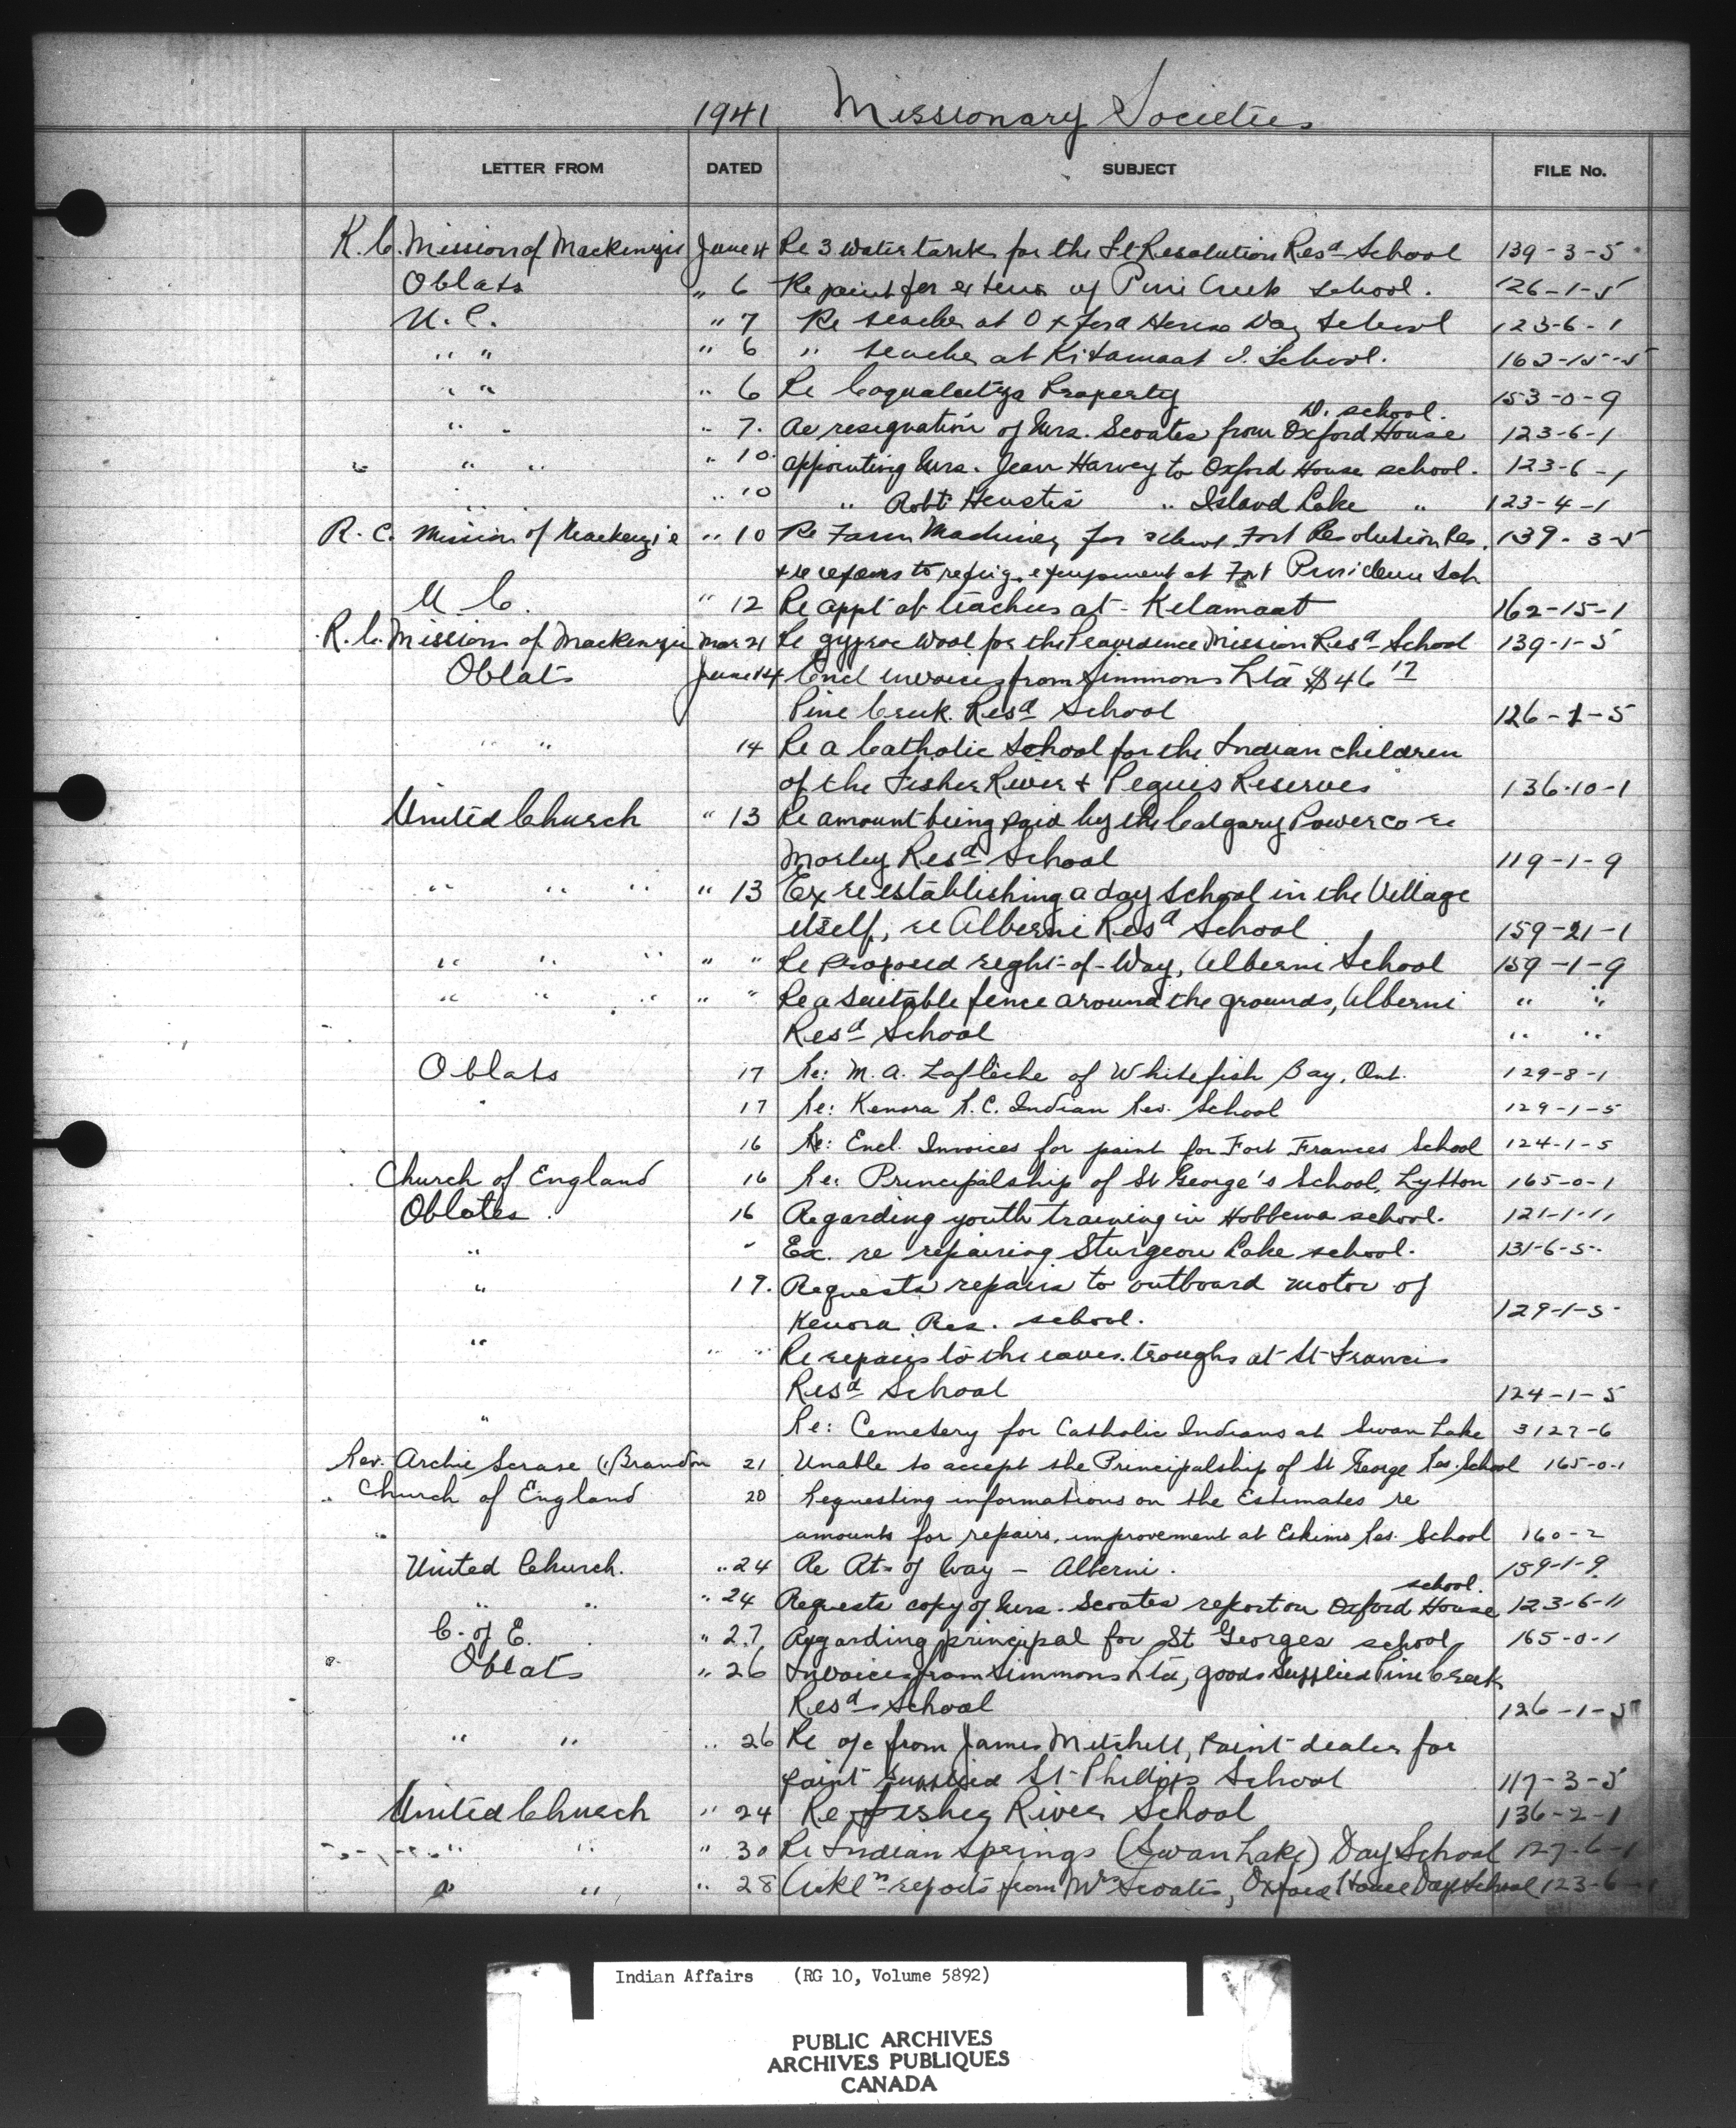 1941 Missionary Societies
LETTER FROM DATED SUBJECT FILE No.
R. C. Mission of Mackenzie June 4 Re 3 water tanks for the Ft Resolution Resd School 139-3-5
Oblats " 6 Re paint for exterior of Pine Creek School. 126-1-5
U. C. " 7 Re teacher at Oxford House Day School 123-6-1
" " " 6 " teacher at Kitamaat I. School. 162-15-5
" " " 6 Re Coqualeetza Property 153-0-9
D. school.
" " " 7. Re resignation of Mrs. Scoates from Oxford House 123-6-1
" " " 10. appointing Mrs. Jean Harvey to Oxford House school. 123-6-1
" " " 10 " Robt Heustis " Island Lake " 123-4-1
R. C. Mission of Mackenzie " 10 Re Farm Machinery for school Fort Resolution Res. 139-3-5
& re repairs to refrig. equipment at Fort Providence Sch
U. C. " 12 Re appt of teachers at - Kitamaat 162-15-1
R. C. Mission of Mackenzie Mar 21 Re gyproc Wool for the Providence Mission Resd School 139-1-5
Oblats June 14 Encl invoices from Simmons Ltd $46 17
Pine Creek Resd School 126-1-5
" " 14 Re a Catholic School for the Indian children
of the Fisher River & Peguis Reserves 136-10-1
United Church " 13 Re amount being paid by the Calgary Power Co re
Morley Resd School 119-1-9
" " " " 13 Ex re establishing a day school in the Village
itself, re Alberni Resd School 159-21-1
" " " " " Re proposed right-of-Way, Alberni School 159-1-9
" " " " " Re a suitable fence around the grounds, Alberni " "
Resd School " "
Oblats 17 Re: M. A. Lafleche of Whitefish Bay, Ont. 129-8-1
" 17 Re: Kenora R.C. Indian Res. School 129-1-5
16 Re: Encl. Invoices for paint for Fort Frances School 124-1-5
Church of England 16 Re: Principalship of St George's School, Lytton 165-0-1
Oblates. 16 Regarding youth training in Hobbema school. 121-1-11
" " Ex. re repairing Sturgeon Lake school. 131-6-5
" 17. Requests repairs to outboard motor of
Kenora Res. school. 129-1-5
" " " Re repairs to the eaves troughs at St Francis
Resd School 124-1-5
" Re: Cemetery for Catholic Indians at Swan Lake 3127-6
Rev. Archie Scrase (Brandon 21 Unable to accept the Principalship of St George Res. School 165-0-1
" Church of England 20 Requesting informations on the Estimates re
" amounts for repairs, improvement at Eskimo Res. School 160-2
United Church. " 24 Re Rt of Way - Alberni. 159-1-9
school.
" " " 24 Requests copy of Mrs. Scoates report on Oxford House 123-6-11
C. of E. " 27 Regarding principal for St Georges school 165-0-1
Oblats " 26 Invoices from Simmons Ltd, goods supplied Pine Creek
Resd School 126-1-5
" " " 26 Re a/c from James Mitchell, paint dealer for
paint supplied St Philipps School 117-3-5
United Church " 24 Re Fisher River School 136-2-1
" " " 30 Re Indian Springs (Swan Lake) Day School 127-6-1
" " " 28 Ackl reports from Mrs Scoates, Oxford House Day School 123-6
Indian Affairs (RG 10, Volume 5892)
PUBLIC ARCHIVES
ARCHIVES PUBLIQUES
CANADA